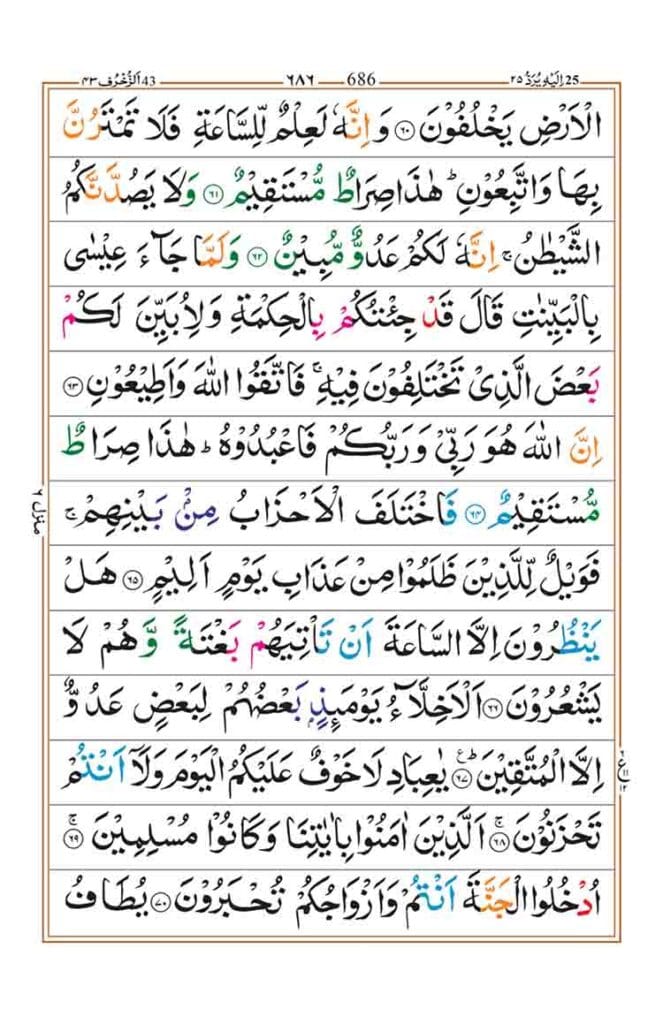 25 اِلَيْهِ يُرَدُّ ٢٥ 686 ٦٨٦ 43 اَلزُّخْرُف ٤٣
الْاَرْضِ يَخْلُفُوْنَ ٦٠ وَاِنَّهٗ لَعِلْمٌ لِّلسَّاعَةِ فَلَا تَمْتَرُنَّ
بِهَا وَاتَّبِعُوْنِ ؕ هٰذَا صِرَاطٌ مُّسْتَقِيْمٌ ٦١ وَلَا يَصُدَّنَّكُمُ
الشَّيْطٰنُ ۚ اِنَّهٗ لَكُمْ عَدُوٌّ مُّبِيْنٌ ٦٢ وَلَمَّا جَآءَ عِيْسٰى
بِالْبَيِّنٰتِ قَالَ قَدْ جِئْتُكُمْ بِالْحِكْمَةِ وَلِاُبَيِّنَ لَكُمْ
بَعْضَ الَّذِىْ تَخْتَلِفُوْنَ فِيْهِ ۚ فَاتَّقُوا اللّٰهَ وَاَطِيْعُوْنِ ٦٣
اِنَّ اللّٰهَ هُوَ رَبِّىْ وَرَبُّكُمْ فَاعْبُدُوْهُ ؕ هٰذَا صِرَاطٌ
مُّسْتَقِيْمٌ ٦٤ فَاخْتَلَفَ الْاَحْزَابُ مِنْۢ بَيْنِهِمْ ۚ
فَوَيْلٌ لِّلَّذِيْنَ ظَلَمُوْا مِنْ عَذَابِ يَوْمٍ اَلِيْمٍ ٦٥ هَلْ
يَنْظُرُوْنَ اِلَّا السَّاعَةَ اَنْ تَاْتِيَهُمْ بَغْتَةً وَّهُمْ لَا
يَشْعُرُوْنَ ٦٦ اَلْاَخِلَّآءُ يَوْمَئِذٍۢ بَعْضُهُمْ لِبَعْضٍ عَدُوٌّ
اِلَّا الْمُتَّقِيْنَ ؕ ٦٧ يٰعِبَادِ لَا خَوْفٌ عَلَيْكُمُ الْيَوْمَ وَلَاۤ اَنْتُمْ
تَحْزَنُوْنَ ۚ ٦٨ اَلَّذِيْنَ اٰمَنُوْا بِاٰيٰتِنَا وَكَانُوْا مُسْلِمِيْنَ ۚ ٦٩
اُدْخُلُوا الْجَنَّةَ اَنْتُمْ وَاَزْوَاجُكُمْ تُحْبَرُوْنَ ٧٠ يُطَافُ
منزل ٦